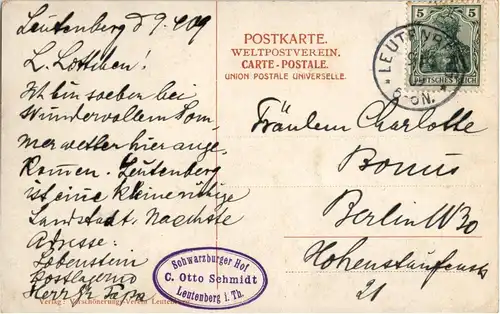 Leutenberg d 9. 4 09
L. Lottchen!
Ich bin soeben bei
wundervollem Som-
merwetter hier ange-
kommen. Leutenberg
ist eine kleine ruhige
Landstadt. Naechste
Adresse:
Lobenstein
postlagernd
Herr
POSTKARTE.
WELTPOSTVEREIN.
CARTE - POSTALE.
UNION POSTALE UNIVERSELLE.
5 5
DEUTSCHES REICH
LEUTENBERG
5-6N.
Fräulein Charlotte
Bonus
Berlin W 30
Hohenstaufenstr
21
Schwarzburger Hof
C. Otto Schmidt
Leutenberg i. Th.
Verlag: Verschönerungs-Verein Leutenberg